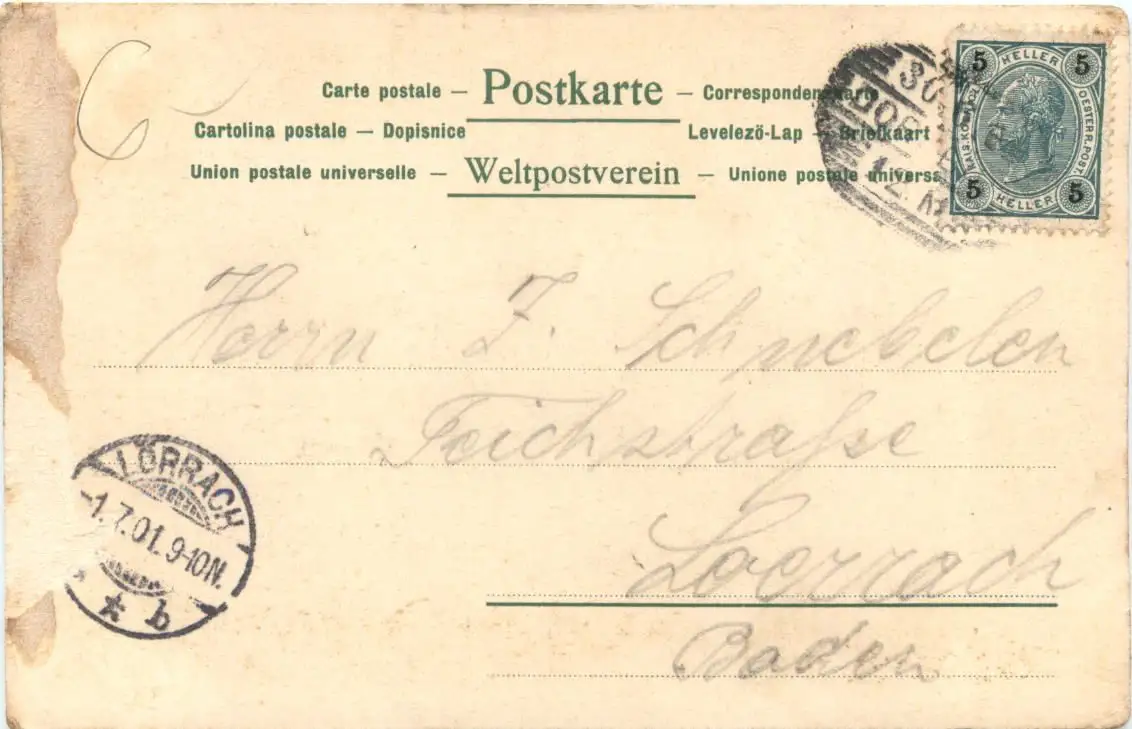 Carte postale — Postkarte — Correspondenzkarte
Cartolina postale — Dopisnice
Levelező-Lap — Briefkaart
Union postale universelle — Weltpostverein — Unione postale universa
5 HELLER 5
OESTERR. POST.
5 HELLER 5
Herrn J. Schnebelen
Teichstraße
Loerrach
Baden
LÖRRACH
-1.7.01. 9-10N.
* b